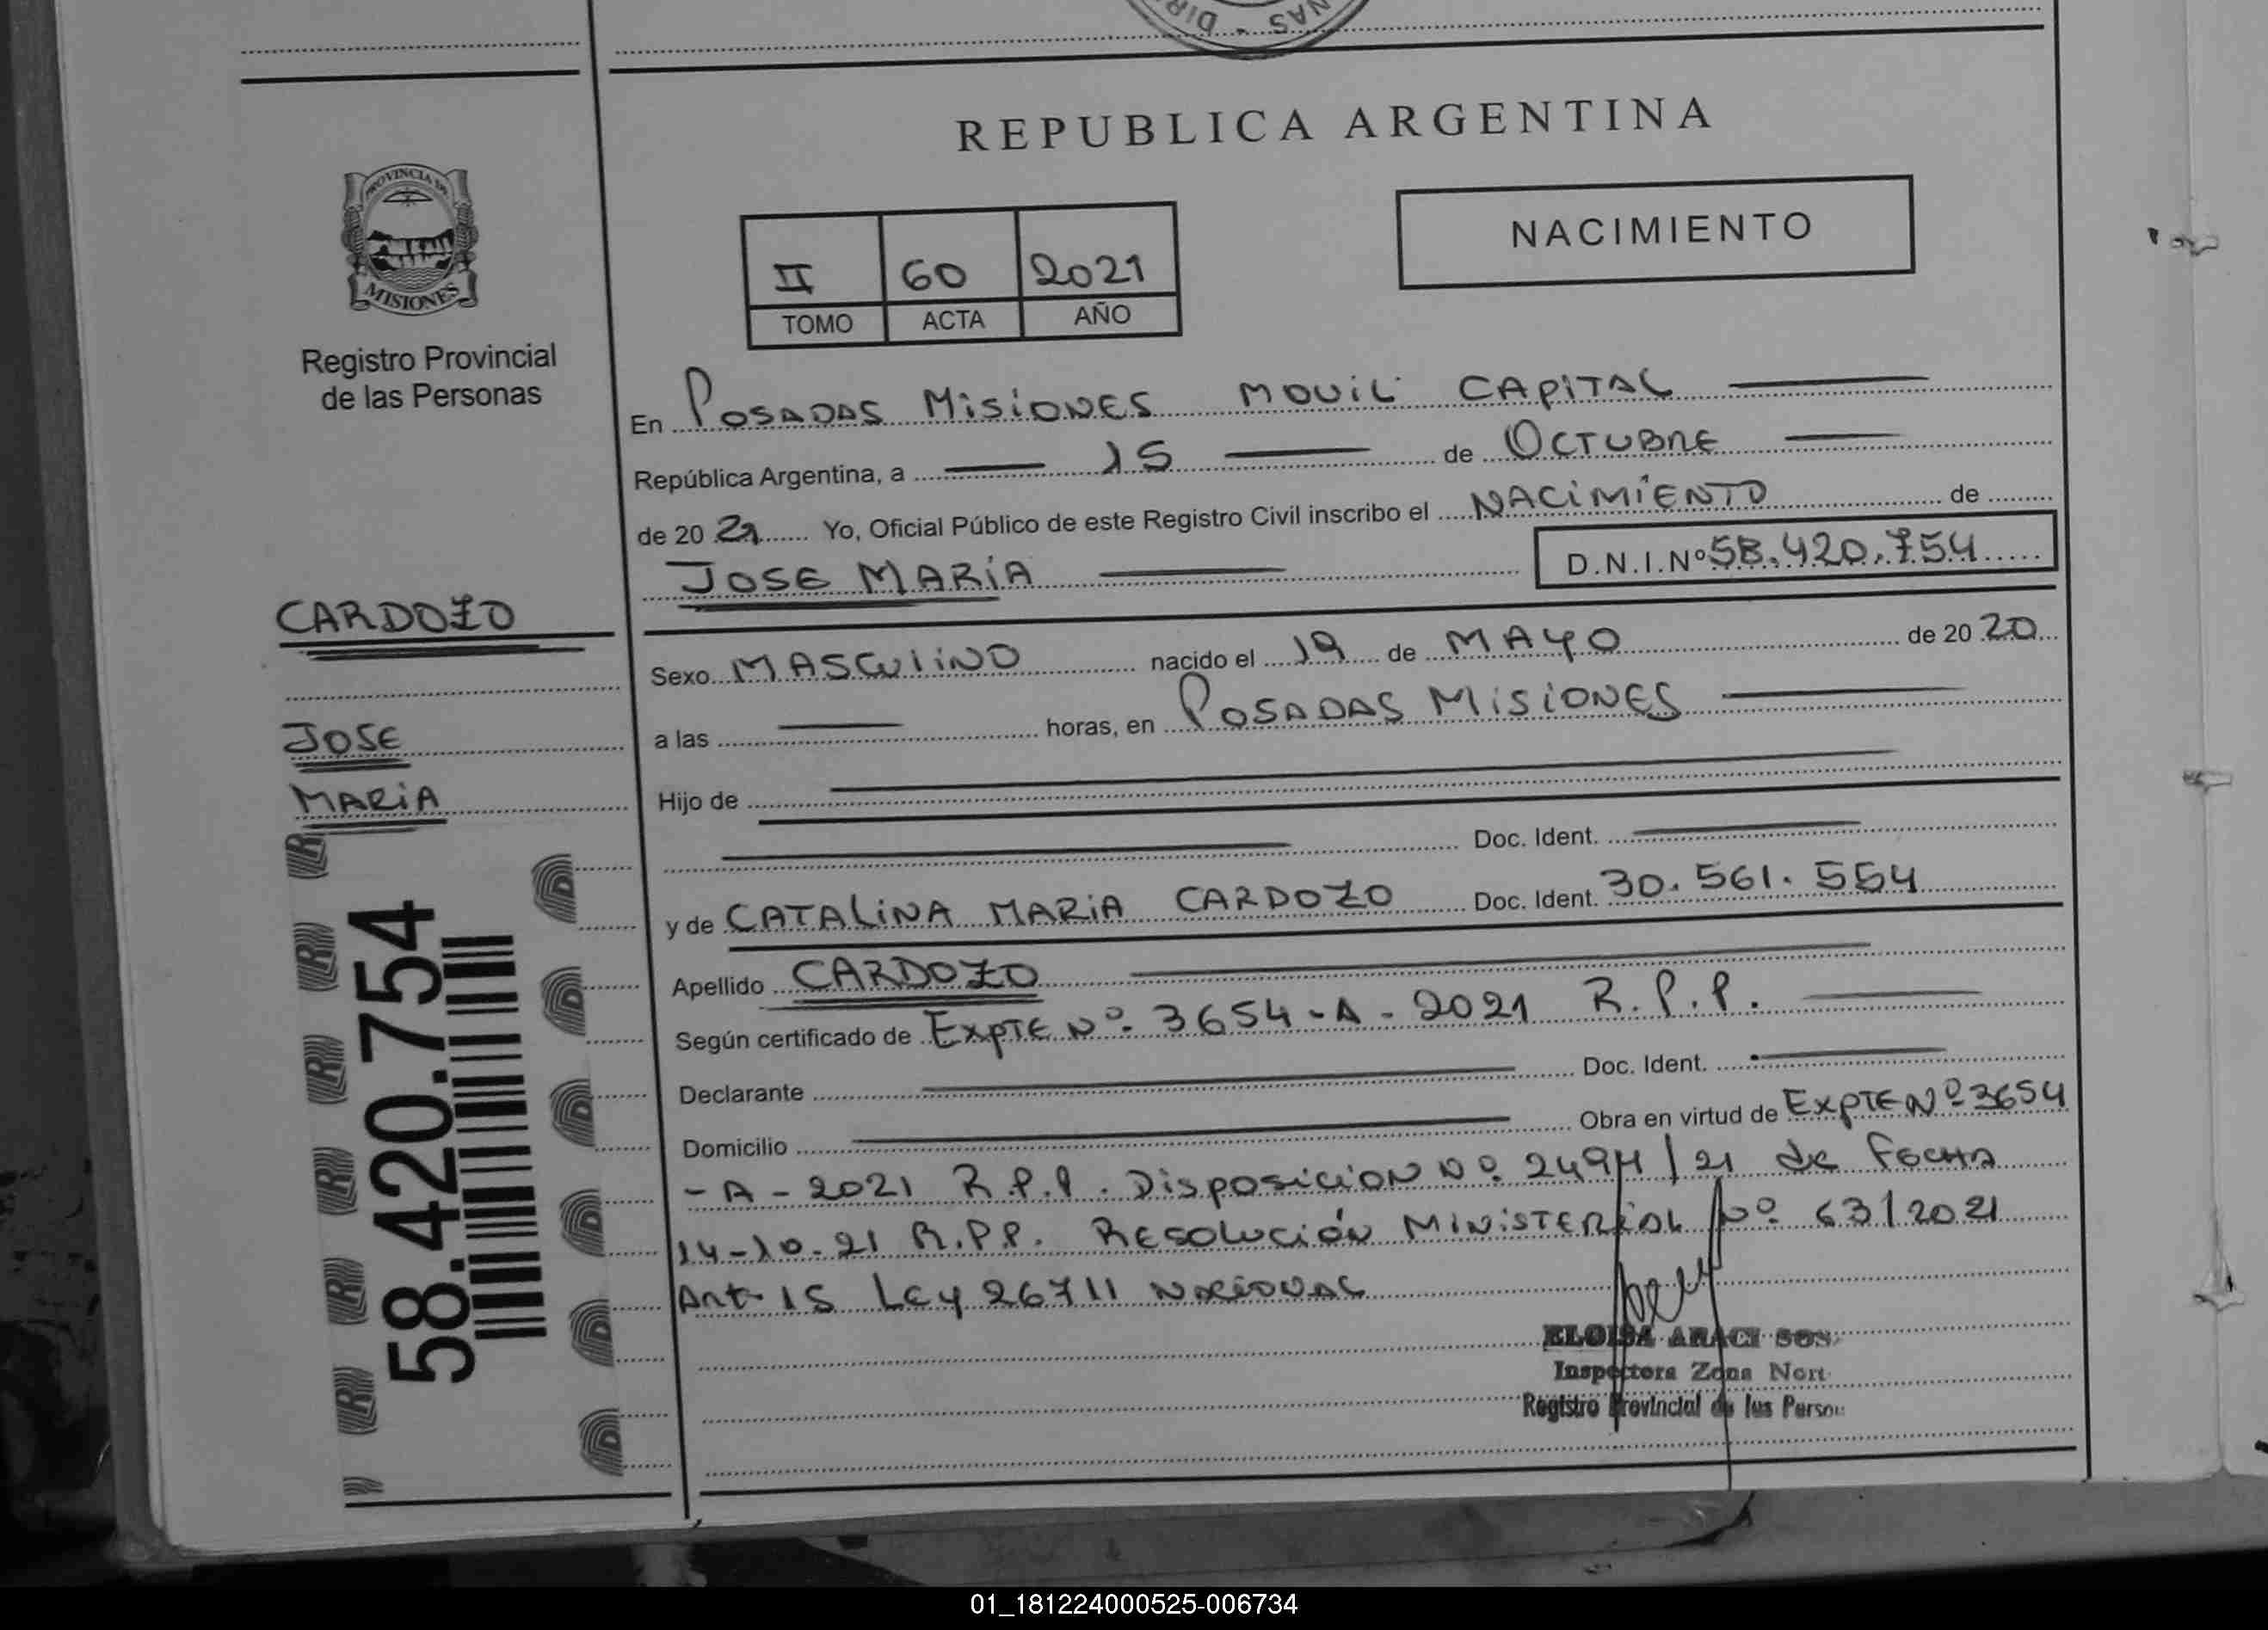 NAS - DIR
REPUBLICA ARGENTINA
PROVINCIA DE
MISIONES
Registro Provincial
de las Personas
NACIMIENTO
II 60 2021
TOMO ACTA AÑO
En POSADAS MISIONES MOVIL CAPITAL
República Argentina, a 15 de OCTUBRE
de 20 21 Yo, Oficial Público de este Registro Civil inscribo el NACIMIENTO de
JOSE MARIA D.N.I.Nº 58.420.754
CARDOZO
JOSE
MARIA
58.420.754
Sexo MASCULINO nacido el 19 de MAYO de 20 20
a las horas, en POSADAS MISIONES
Hijo de
Doc. Ident.
y de CATALINA MARIA CARDOZO Doc. Ident. 30.561.554
Apellido CARDOZO
Según certificado de EXPTE Nº 3654-A-2021 R.P.P.
Declarante Doc. Ident.
Domicilio Obra en virtud de EXPTE Nº 3654
-A-2021 R.P.P. DISPOSICION Nº 2494/21 de FECHA
14-10-21 R.P.P. RESOLUCIÓN MINISTERIAL Nº 631/2021
Art. 15 LEY 26711 NACIONAL
ELOISA ARACI SOS
Inspectora Zona Nort
Registro Provincial de las Person
01_181224000525-006734